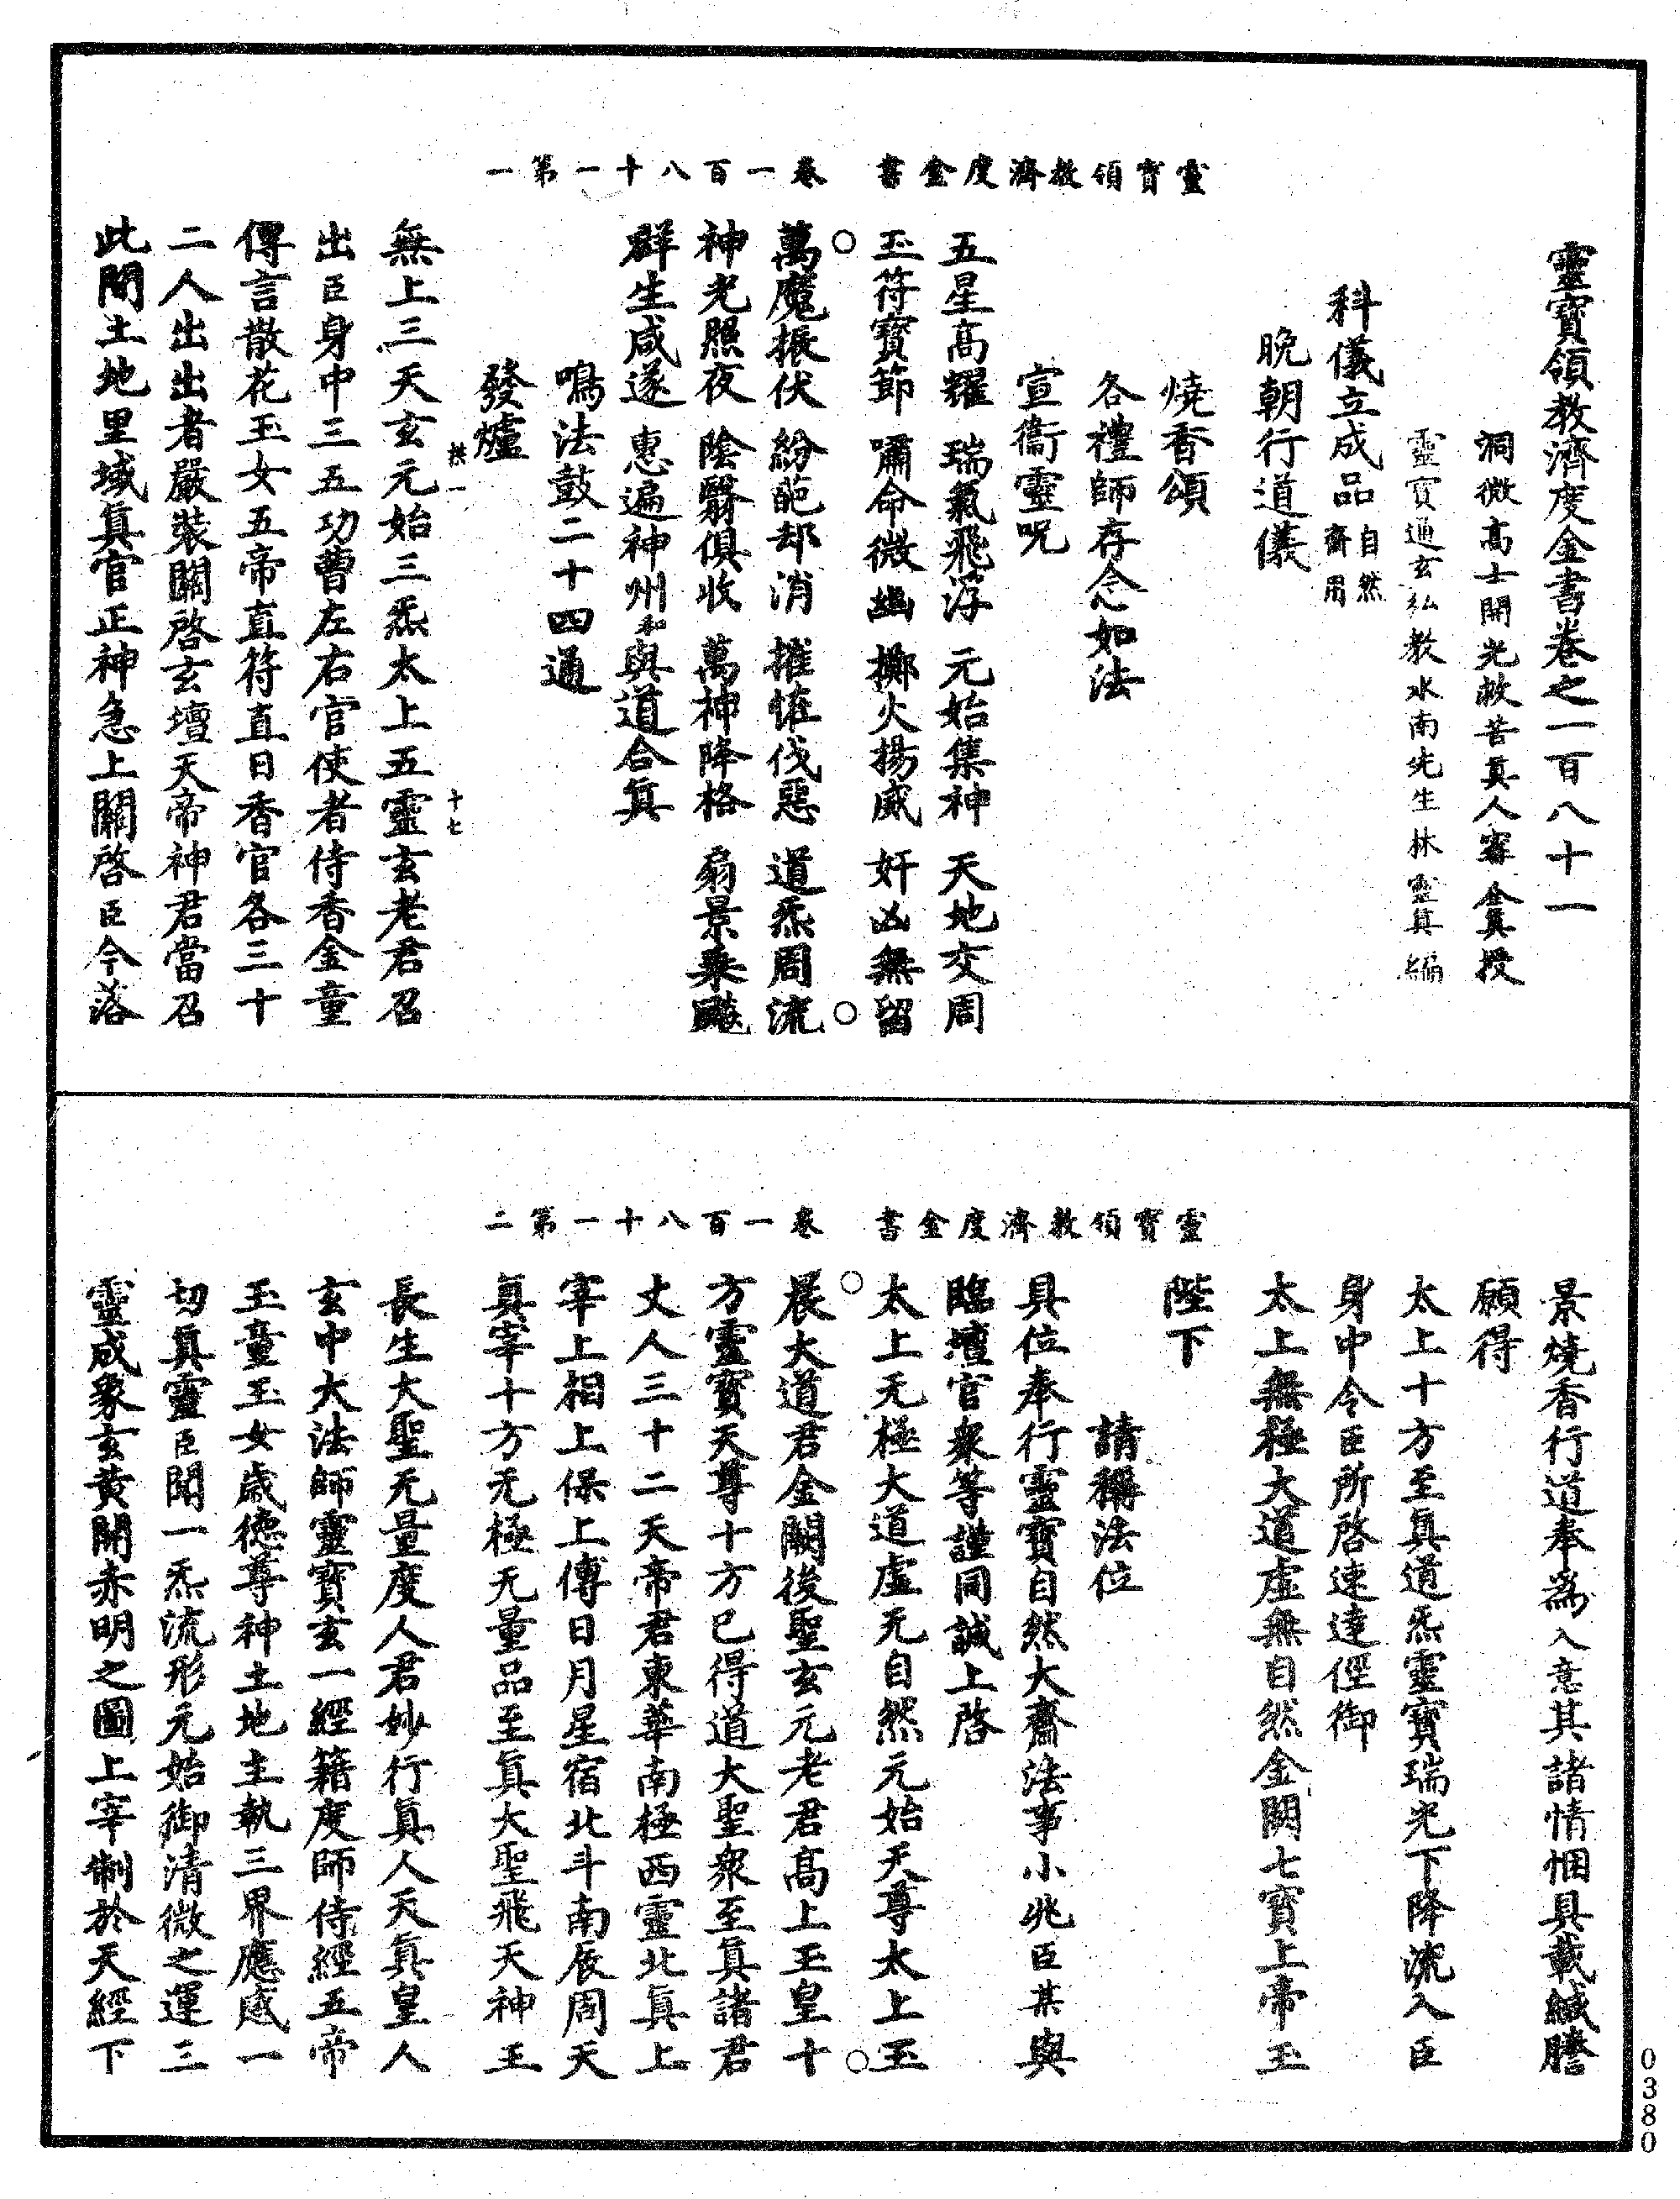 靈寶領教濟度金書　卷一百八十一第一
靈寶領教濟度金書卷之一百八十一
洞微高士開光救苦真人甯全真授
靈寶通玄弘教水南先生林靈真編
科儀立成品自然齋用
晚朝行道儀
燒香頌
各禮師存念如法
宣衞靈呪
五星高耀　瑞氣飛浮　元始集神　天地交周
玉符寶節　嘯命微幽　擲火揚威　奸凶無留
萬魔振伏　紛葩却消　摧㤥伐惡　道炁周流
神光照夜　陰翳俱收　萬神降格　扇景乘飈
群生咸遂　惠遍神州和與道合真
鳴法鼓二十四通
發爐
拱一　十七
無上三天玄元始三炁太上五靈玄老君召
出臣身中三五功曹左右官使者侍香金童
傳言散花玉女五帝直符直日香官各三十
二人出出者嚴裝關啓玄壇天帝神君當召
此間土地里域真官正神急上關啓臣今落
靈寶領教濟度金書　卷一百八十一第二
景燒香行道奉為入意其諸情悃具載緘謄
願得
太上十方至真道炁靈寶瑞光下降流入臣
身中令臣所啓速達徑御
太上無極大道虛無自然金闕七寶上帝玉
陛下
請稱法位
具位奉行靈寶自然大齋法事小兆臣某與
臨壇官衆等謹同誠上啓
太上无極大道虛无自然元始天尊太上玉
晨大道君金闕後聖玄元老君高上玉皇十
方靈寶天尊十方已得道大聖衆至真諸君
丈人三十二天帝君東華南極西靈北真上
宰上相上保上傅日月星宿北斗南辰周天
真宰十方无極无量品至真大聖飛天神王
長生大聖无量度人君妙行真人天真皇人
玄中大法師靈寶玄一經籍度師侍經五帝
玉童玉女歲德尊神土地主執三界應感一
切真靈臣聞一炁流形元始御清微之運三
靈成象玄黃開赤明之圖上宰制於天經下
0380